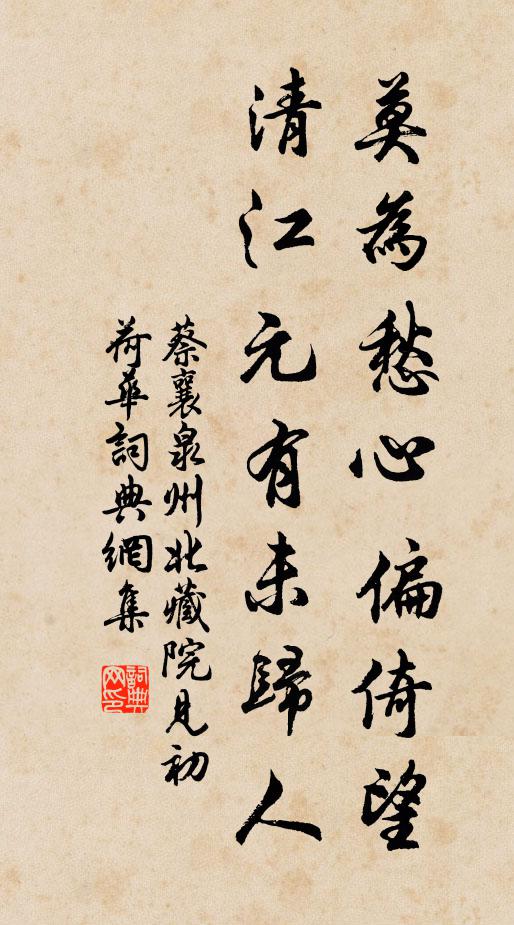 莫為愁心偏倚望
清江元有未歸人
蔡襄泉州北藏院見初
荷華詞典網集
詞典网印